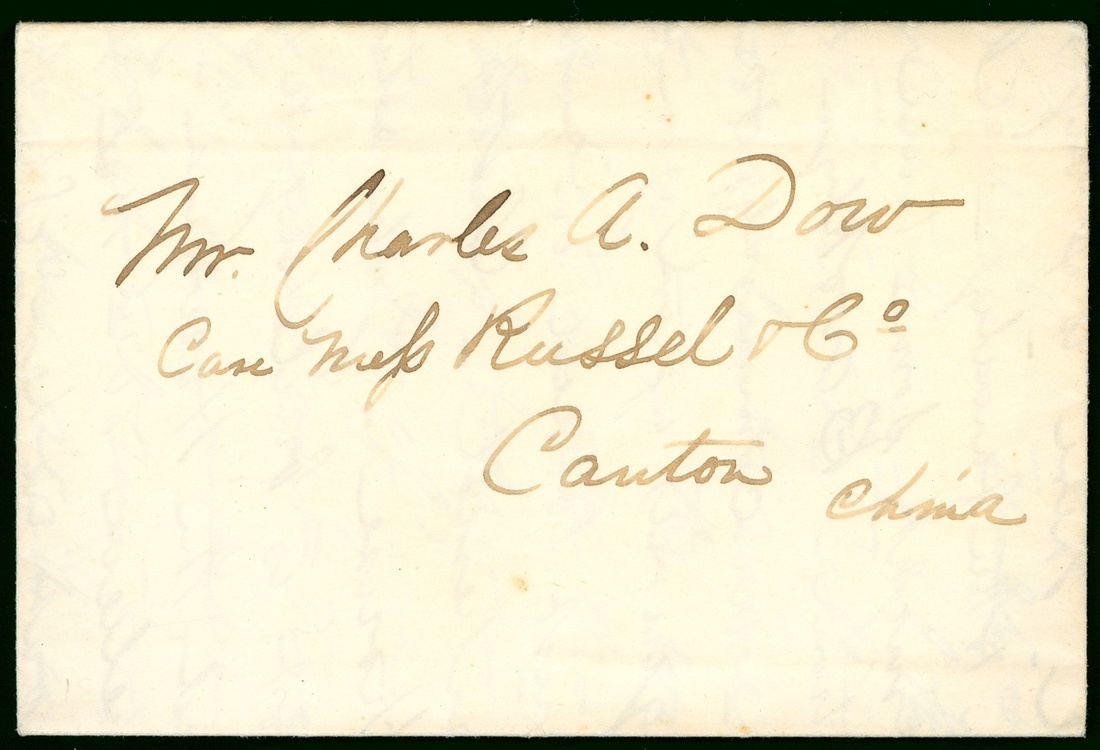 Mr. Charles A. Dow
Care Mess Russel & Co
Canton
China